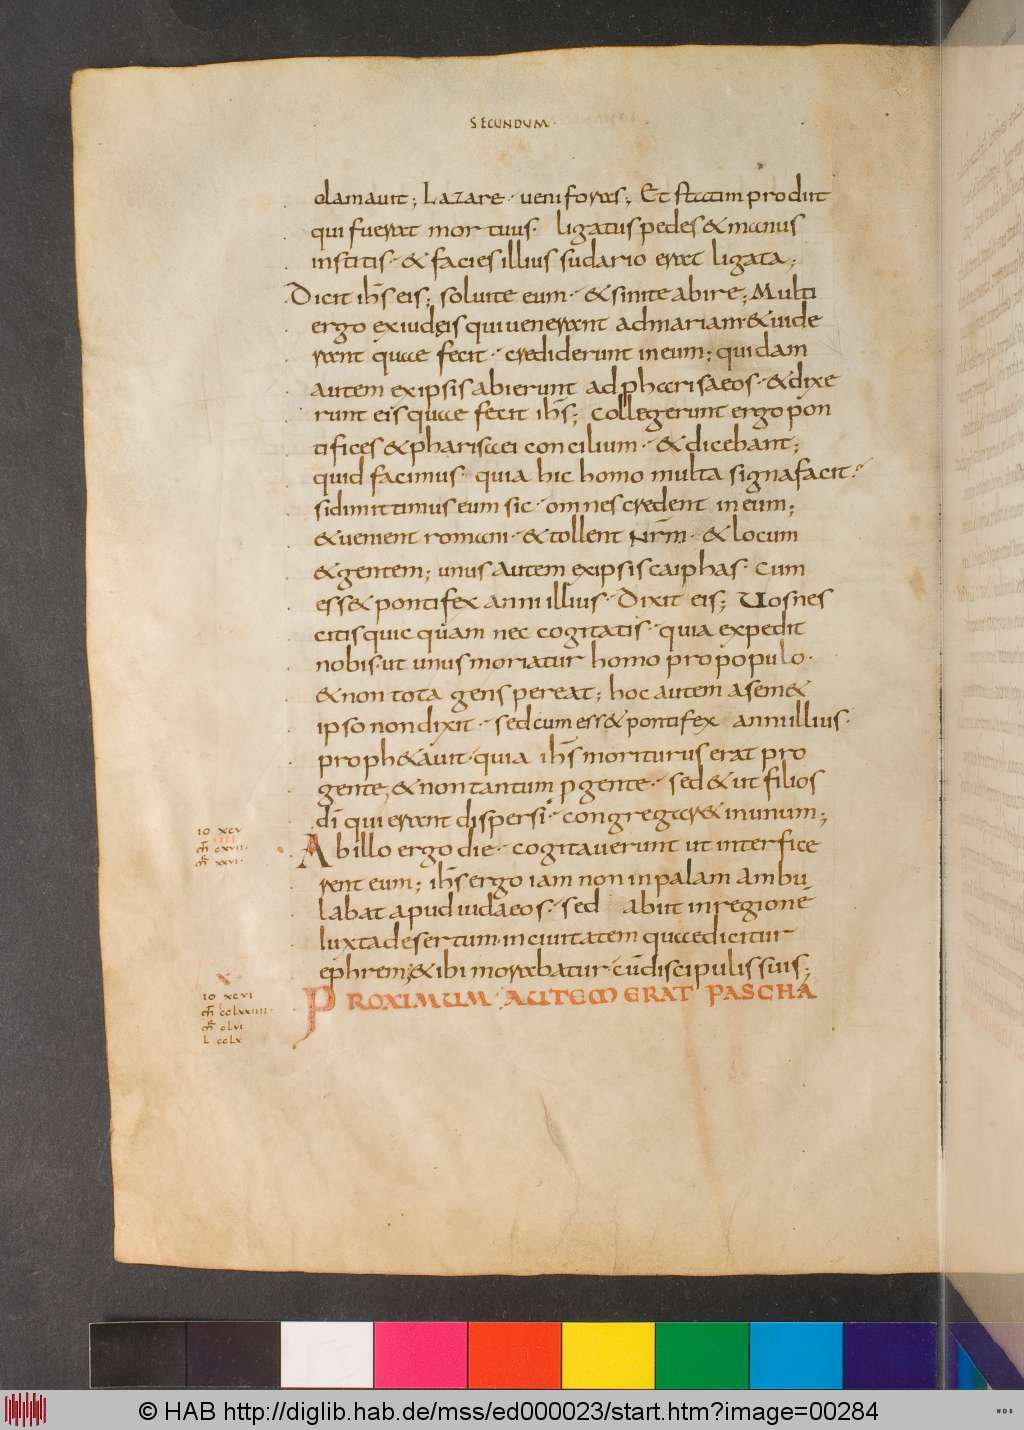 SECUNDUM
clamavit; Lazare· veni foras; Et statim prodiit
qui fuerat mortuus· ligatus pedes & manus
institis· & facies illius sudario erat ligata;
Dicit ihs̄ eis; solvite eum· & sinite abire; Multi
ergo ex iudęis qui venerant ad mariam· & vide
rant quae fecit· crediderunt in eum; quidam
autem ex ipsis abierunt ad pharisaeos· & dixe
runt eis quae fecit ihs̄; Collegerunt ergo pon
tifices & pharisaei concilium· & dicebant;
quid facimus· quia hic homo multa signa facit·
si dimittimus eum sic· omnes credent in eum;
& venient romani· & tollent nrm̄· & locum
& gentem; unus autem ex ipsis caiphas· cum
ess& pontifex anni illius· Dixit eis; Vos nes
citis quic quam nec cogitatis· quia expedit
nobis· ut unus moriatur homo pro populo·
& non tota gens pereat; hoc autem a sem&
ipso non dixit· sed cum ess& pontifex anni illius·
proph&avit· quia ihs̄ moriturus erat pro
gente; & non tantum p gente· sed & ut filios
dī qui erant dispersi· congregar& in unum;
Ab illo ergo die· cogitaverunt ut interfice
rent eum; ihs̄ ergo iam non in palam ambu
labat apud iudaeos· sed abiit in regionē
iuxta desertum· in civitatem quae dicitur
ephrem; & ibi morabatur cū discipulis suis;
PROXIMUM AUTEM ERAT PASCHA
IO XCV
m̄ CXVII
m̄ XXVI
X
IO XCVI
m̄ CCLXXIIII
m̄ CLVI
L CCLX
© HAB http://diglib.hab.de/mss/ed000023/start.htm?image=00284